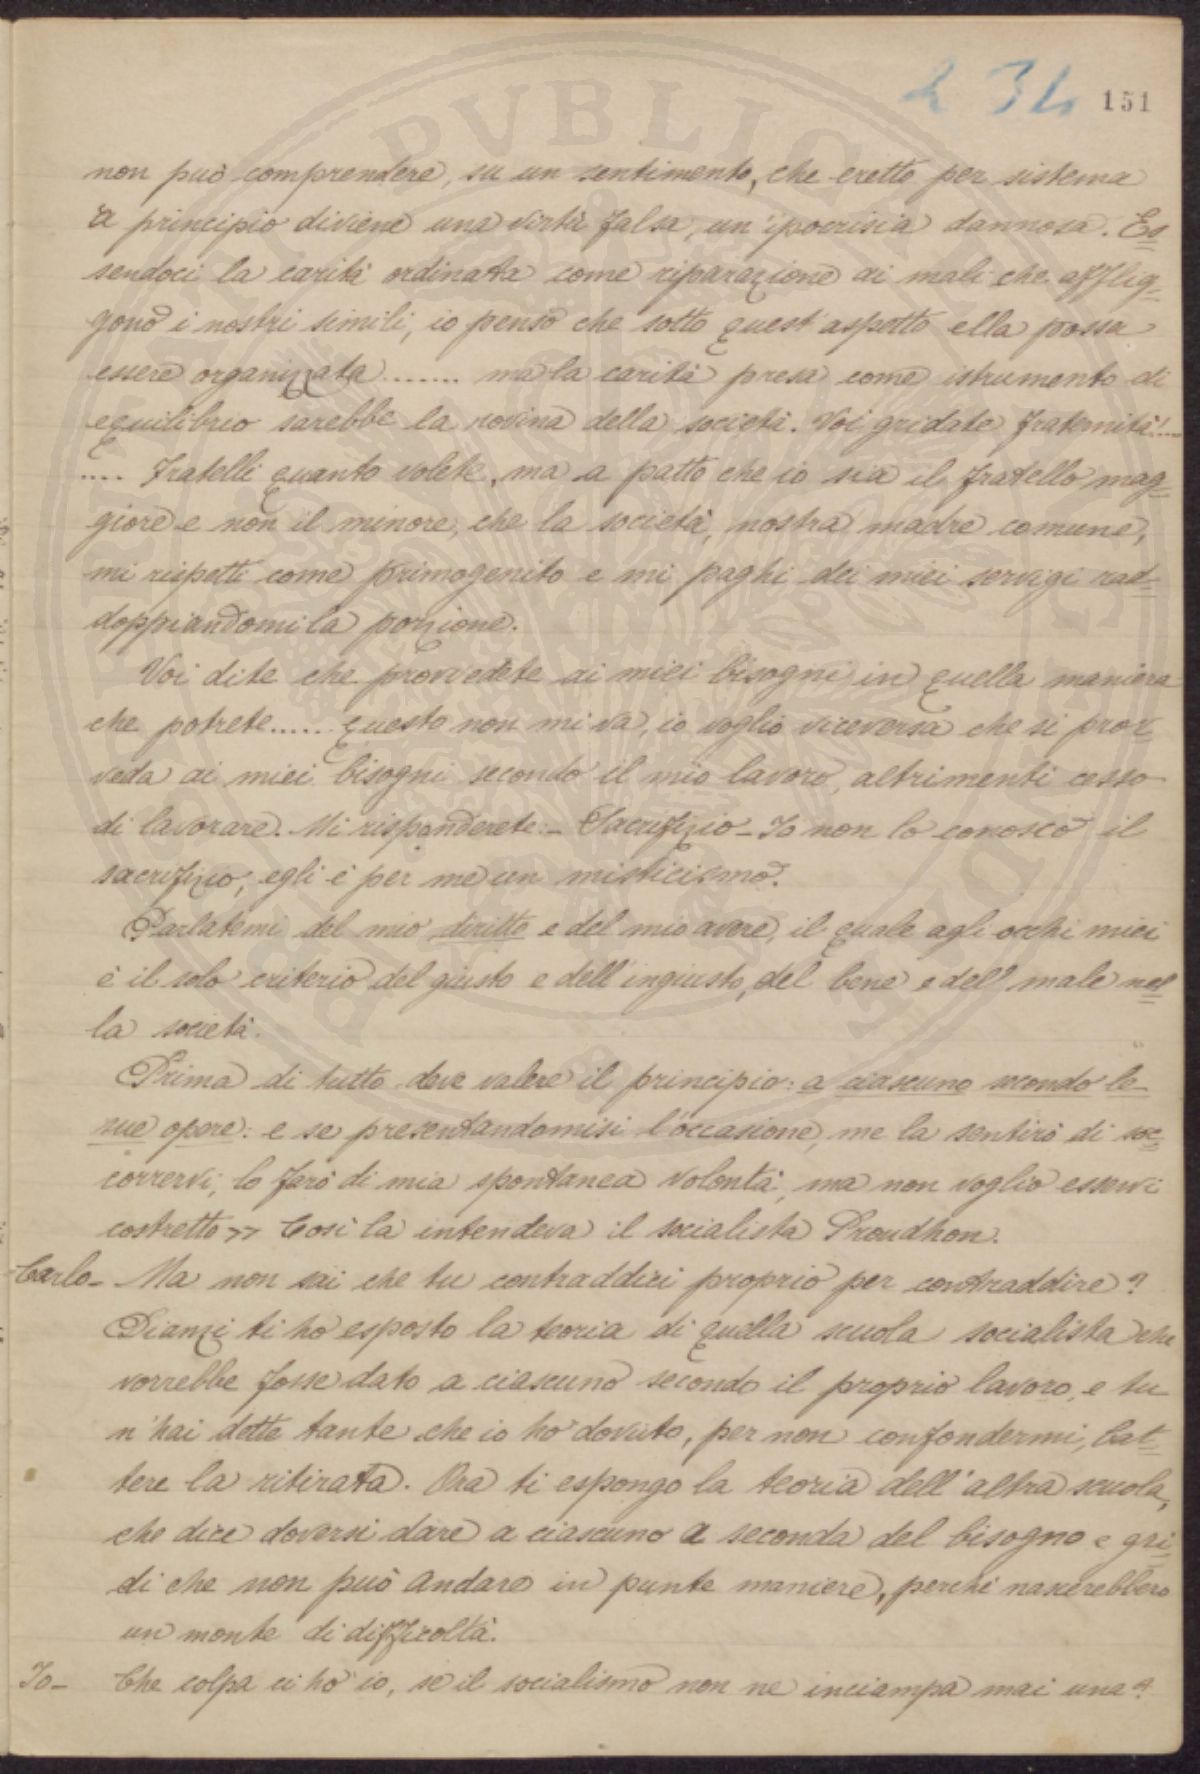 234 151
non può comprendere, su un sentimento, che eretto per sistema
a principio diviene una virtù falsa, un'ipocrisia dannosa. Es
sendoci la carità ordinata come riparazione ai mali che afflig-
gono i nostri simili, io penso che sotto quest'aspetto ella possa
essere organizzata ....... ma la carità presa come istrumento di
equilibrio sarebbe la rovina della società. Voi gridate fraternità!....
.... Fratelli quanto volete, ma a patto che io sia il fratello mag-
giore e non il minore, che la società, nostra madre comune,
mi rispetti come primogenito e mi paghi dei miei servigi rad-
doppiandomi la porzione.
Voi dite che provvedete ai miei bisogni in quella maniera
che potrete...... questo non mi va, io voglio viceversa che si prov-
veda ai miei bisogni secondo il mio lavoro, altrimenti cesso
di lavorare. Mi risponderete:- Sacrifizio - Io non lo conosco il
sacrifizio, egli è per me un misticismo.
Parlatemi del mio diritto e del mio avere, il quale agli occhi miei
è il solo criterio del giusto e dell'ingiusto, del bene e dell male nel
la società.
Prima di tutto deve valere il principio: a ciascuno secondo le
sue opere: e se presentandomisi l'occasione, me la sentirò di soc-
corrervi, lo farò di mia spontanea volontà, ma non voglio esservi
costretto >> Così la intendeva il socialista Proudhon.
Carlo- Ma non sai che tu contraddici proprio per contraddire?
Dianzi ti ho esposto la teoria di quella scuola socialista che
vorrebbe fosse dato a ciascuno secondo il proprio lavoro, e tu
n'hai dette tante che io ho dovuto, per non confondermi, bat-
tere la ritirata. Ora ti espongo la teoria dell'altra scuola,
che dice doversi dare a ciascuno a seconda del bisogno e gri-
di che non può andare in punte maniere, perché nascerebbero
un monte di difficoltà.
Io- Che colpa ci ho io, se il socialismo non ne inciampa mai una?